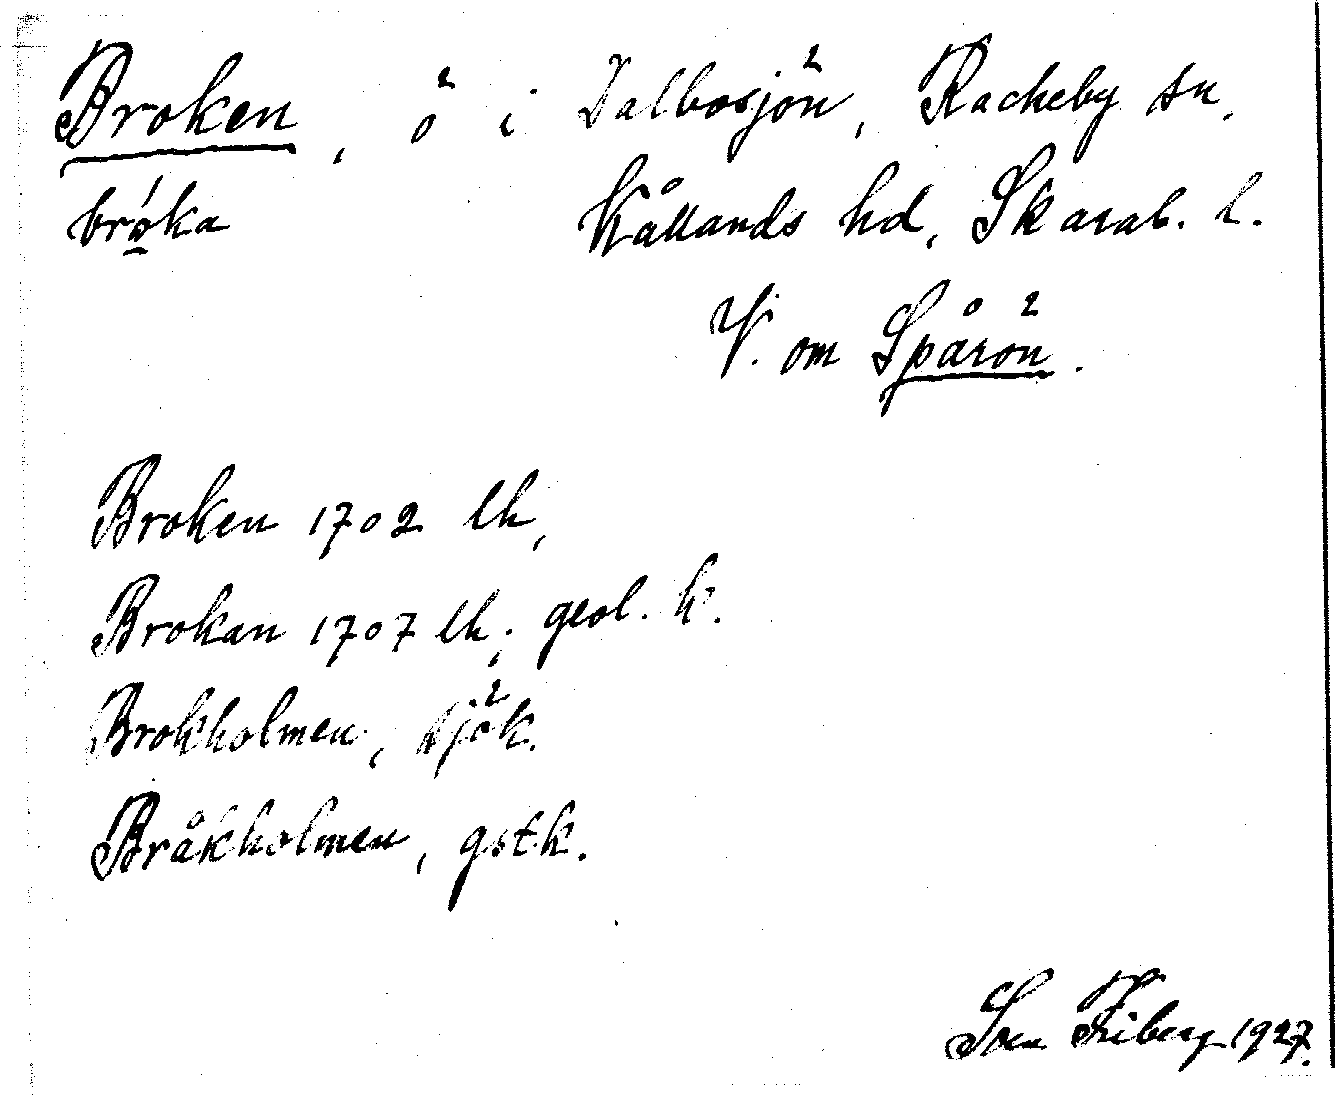 Broken, ö i Dalbosjön, Rackeby sn,
bro̱ka Kållands hd, Skarab. l.
V. om Spårön.
Broken 1702 lk,
Brokan 1707 lk; geol. k.
Brokholmen, sjök.
Bråkholmen, gstk.
Sven Friberg 1927.